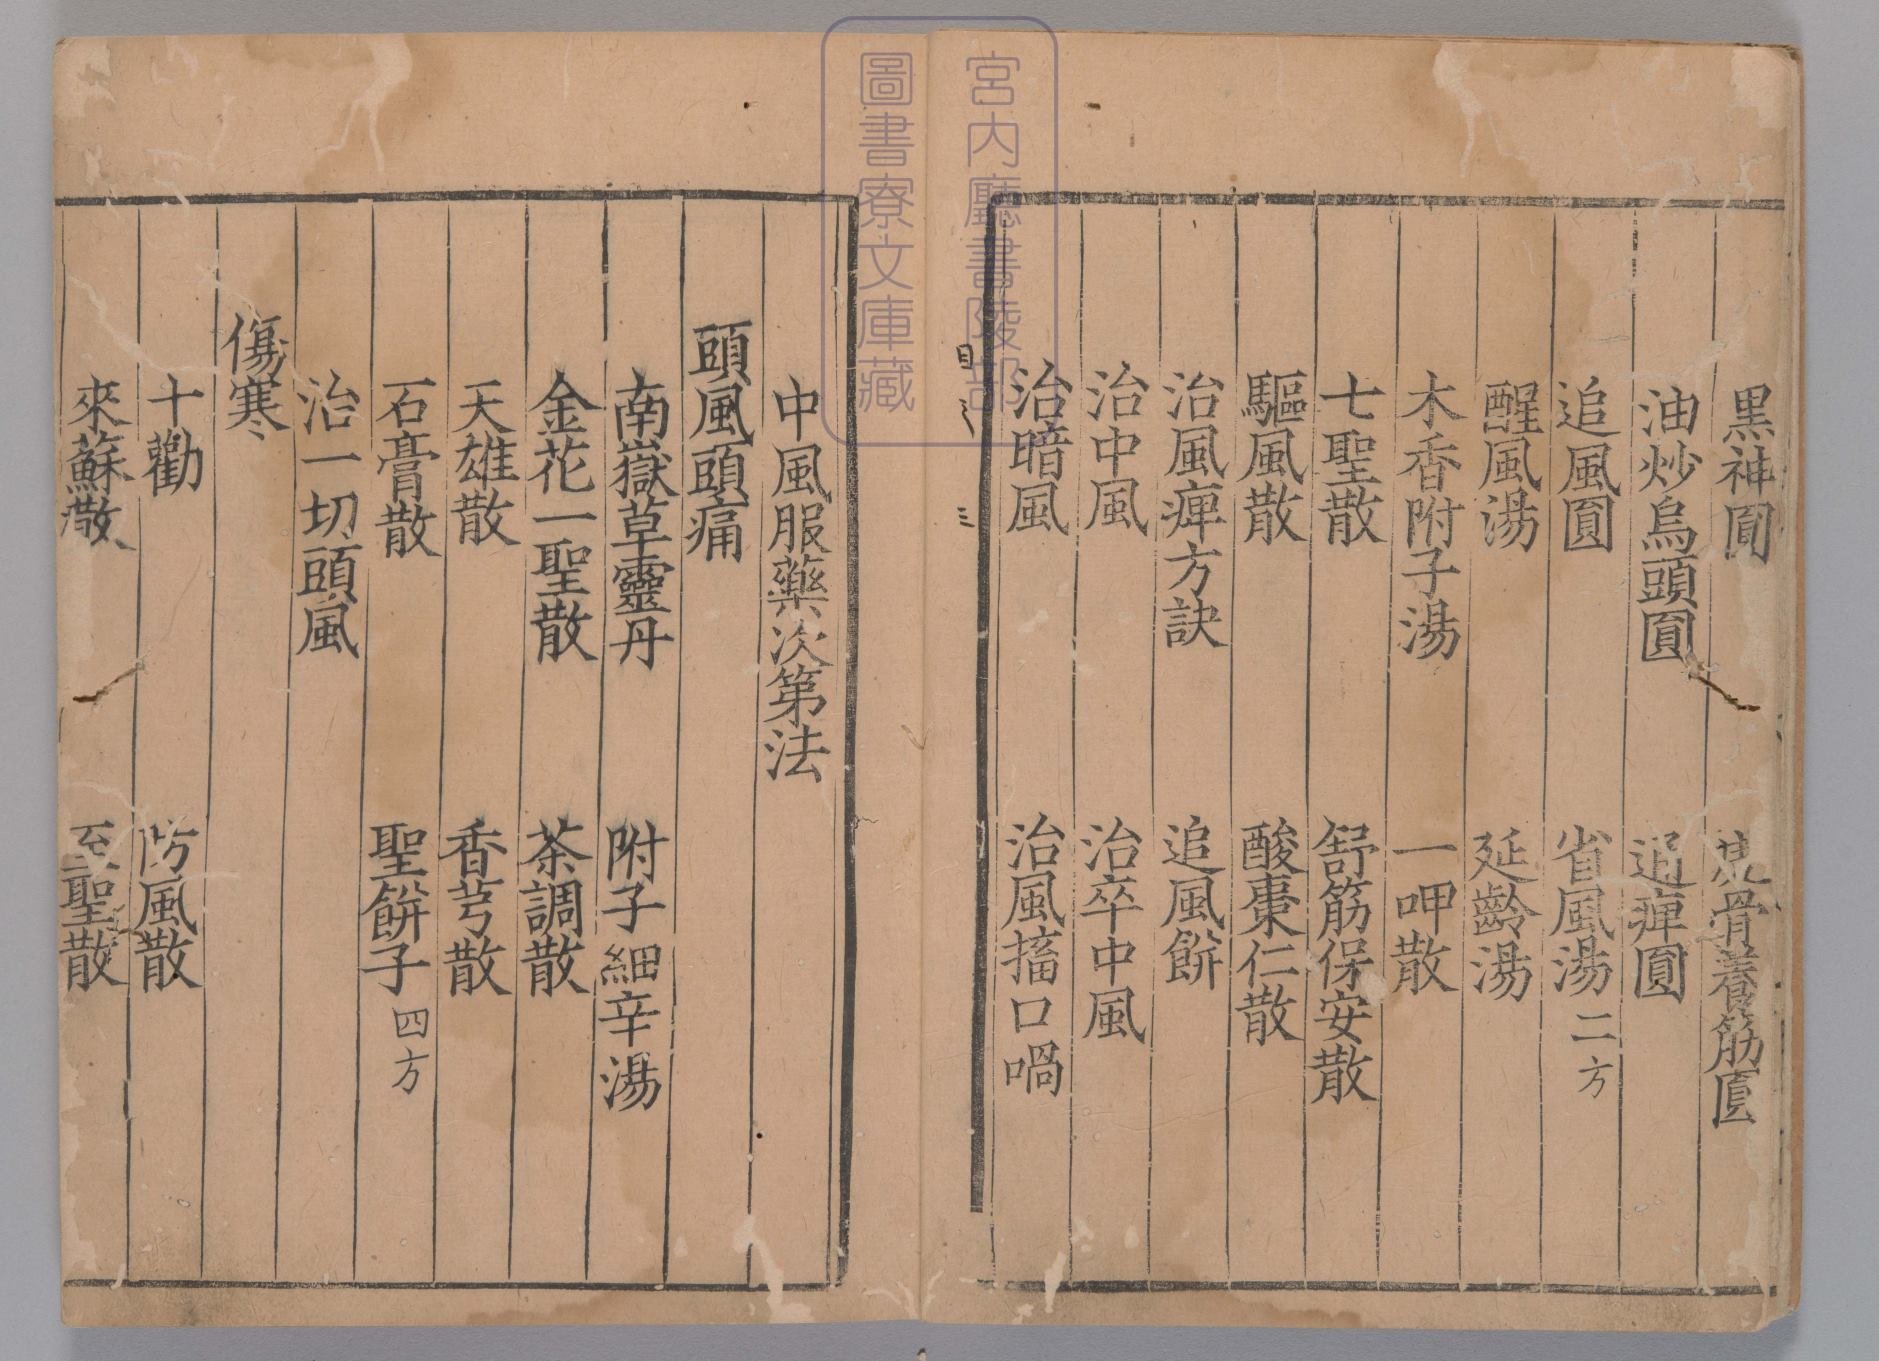 黒神圎
骨養筋圎
油炒烏頭圎
追痺圎
追風圎
省風湯二方
醒風湯
延齡湯
木香附子湯
一呷散
七聖散
舒筋保安散
驅風散
酸棗仁散
治風痺方訣
追風餅
治中風
治卒中風
治暗風
治風搐口喎
目
三
中風服藥次第法
頭風頭痛
南嶽草靈丹
附子細辛湯
金花一聖散
茶調散
天雄散
香芎散
石膏散
聖餅子四方
治一切頭風
傷寒
十勸
防風散
來蘇散
至聖散
宮内廳書陵部
圖書寮文庫藏